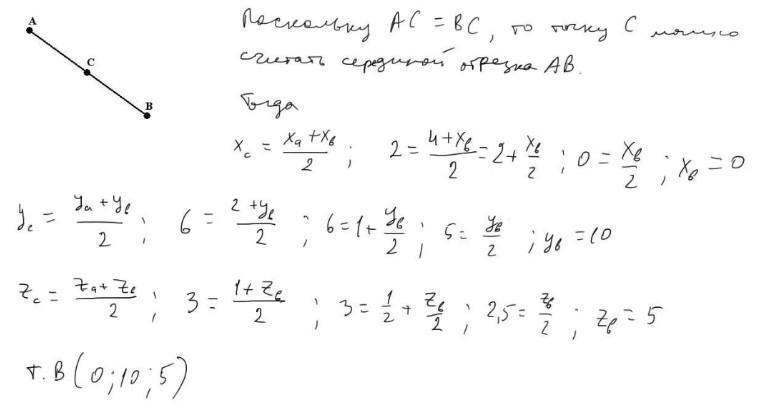 A
C
B
Поскольку AC = BC, то точку C можно
считать серединой отрезка AB.
Тогда
x_c = (x_a + x_b)/2 ; 2 = (4 + x_b)/2 = 2 + x_b/2 ; 0 = x_b/2 ; x_b = 0
y_c = (y_a + y_b)/2 ; 6 = (2 + y_b)/2 ; 6 = 1 + y_b/2 ; 5 = y_b/2 ; y_b = 10
z_c = (z_a + z_b)/2 ; 3 = (1 + z_b)/2 ; 3 = 1/2 + z_b/2 ; 2,5 = z_b/2 ; z_b = 5
т. B (0; 10; 5)